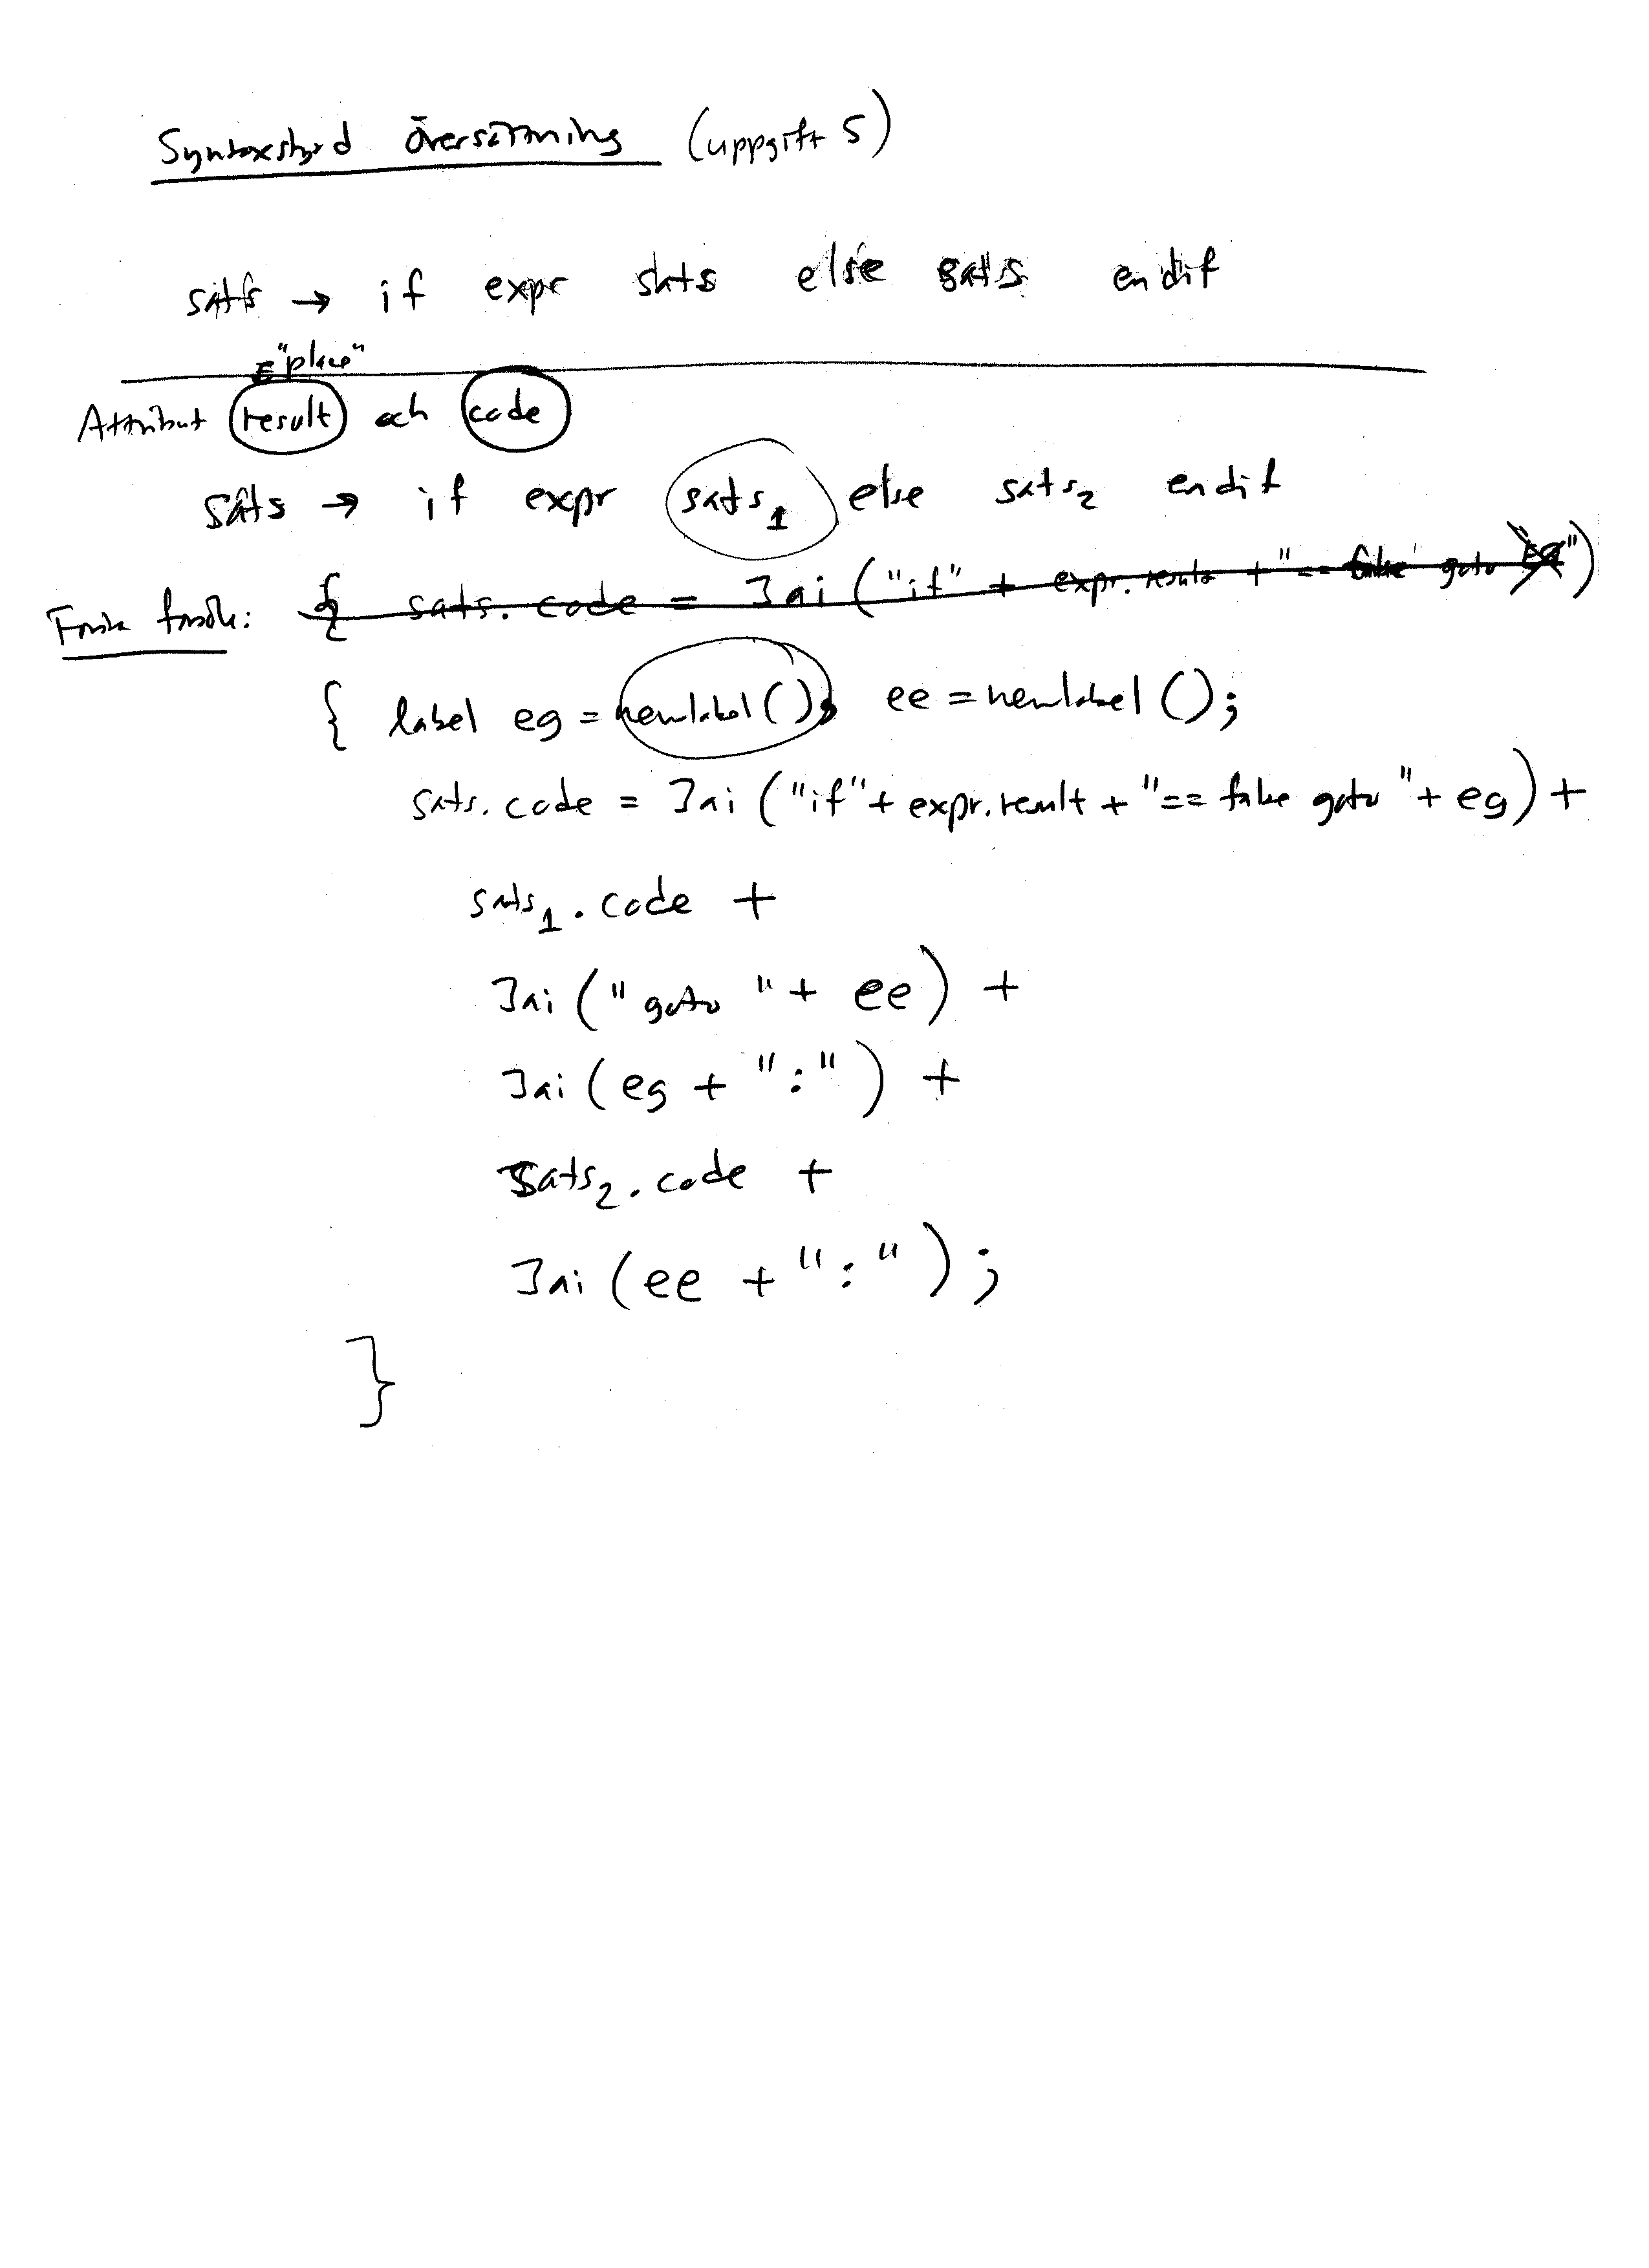 Syntaxstyrd översättning (uppgift 5)
sats → if expr sats else sats endif
≡ "place"
Attribut result och code
sats → if expr sats₁ else sats₂ endif
{ sats.code = 3ai ("if" + expr.result + "== false goto ")
{ label eg = newlabel(), ee = newlabel();
sats.code = 3ai ("if" + expr.result + "== false goto " + eg) +
sats₁.code +
3ai ("goto " + ee) +
3ai (eg + ":") +
sats₂.code +
3ai (ee + ":");
}